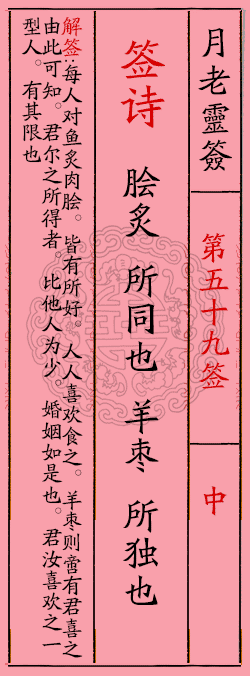 月老靈簽
第五十九签
中
签诗
脍炙 所同也 羊枣 所独也
解签:每人对鱼炙肉脍。皆有所好。人人喜欢食之。羊枣则啻有君喜之
由此可知。君尔之所得者 比他人为少。婚姻如是也。君汝喜欢之一
型人。有其限也